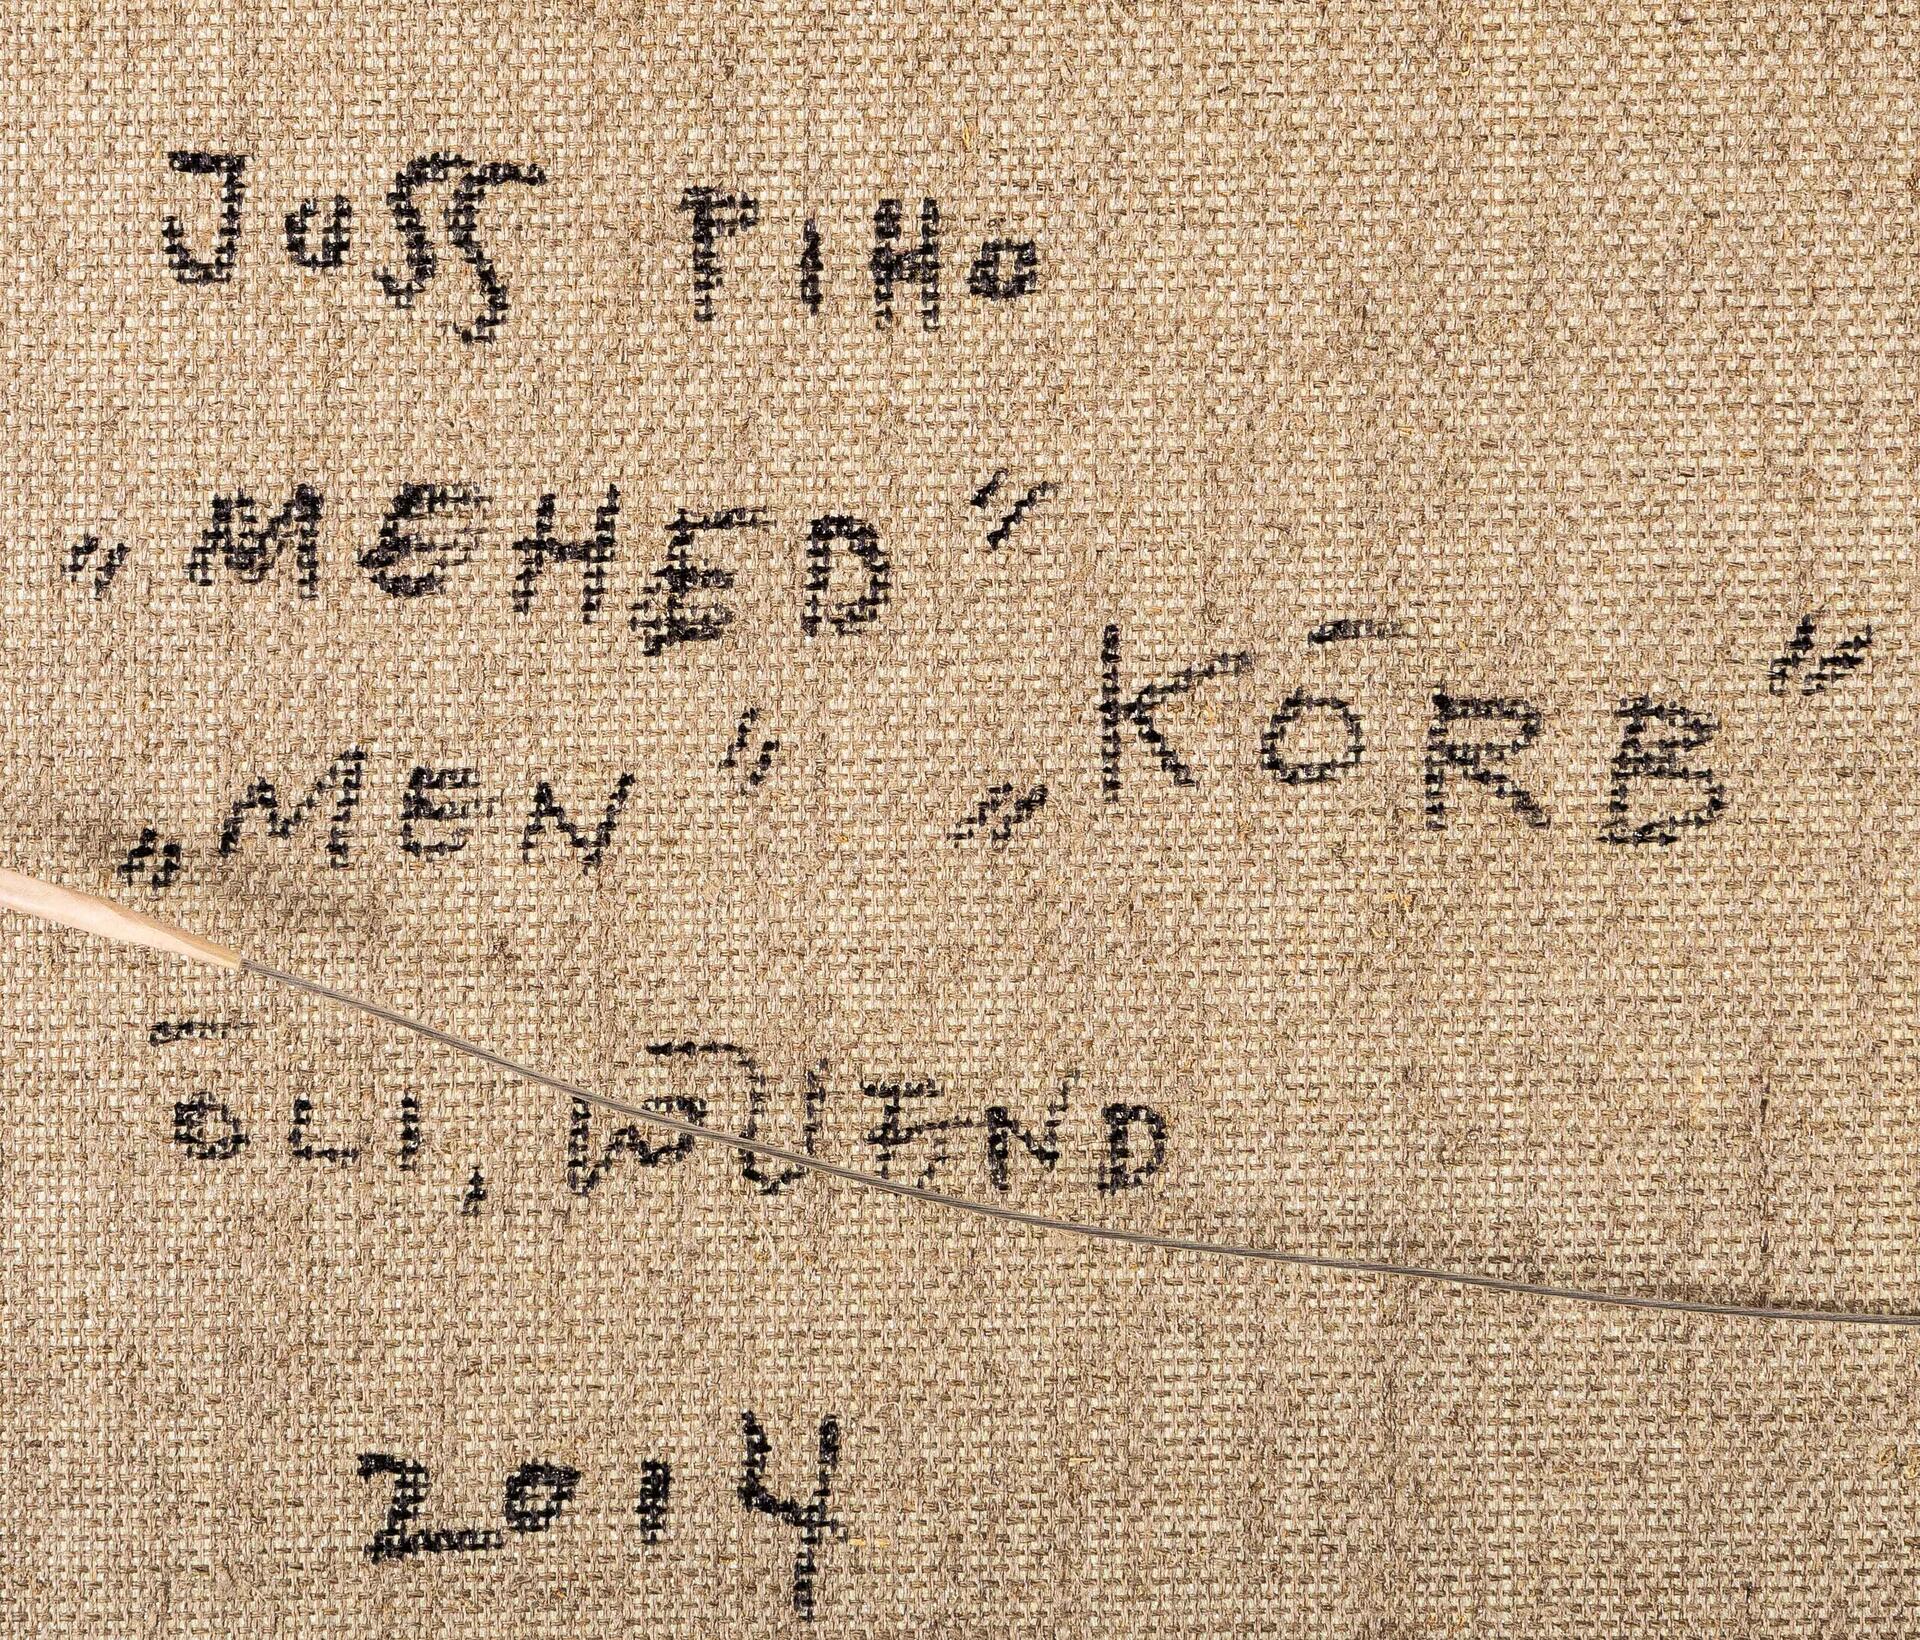 JoSS PIHo
„MEHED”
„MEN” „KÕRB”
ÕLI, LÕUEND
2014